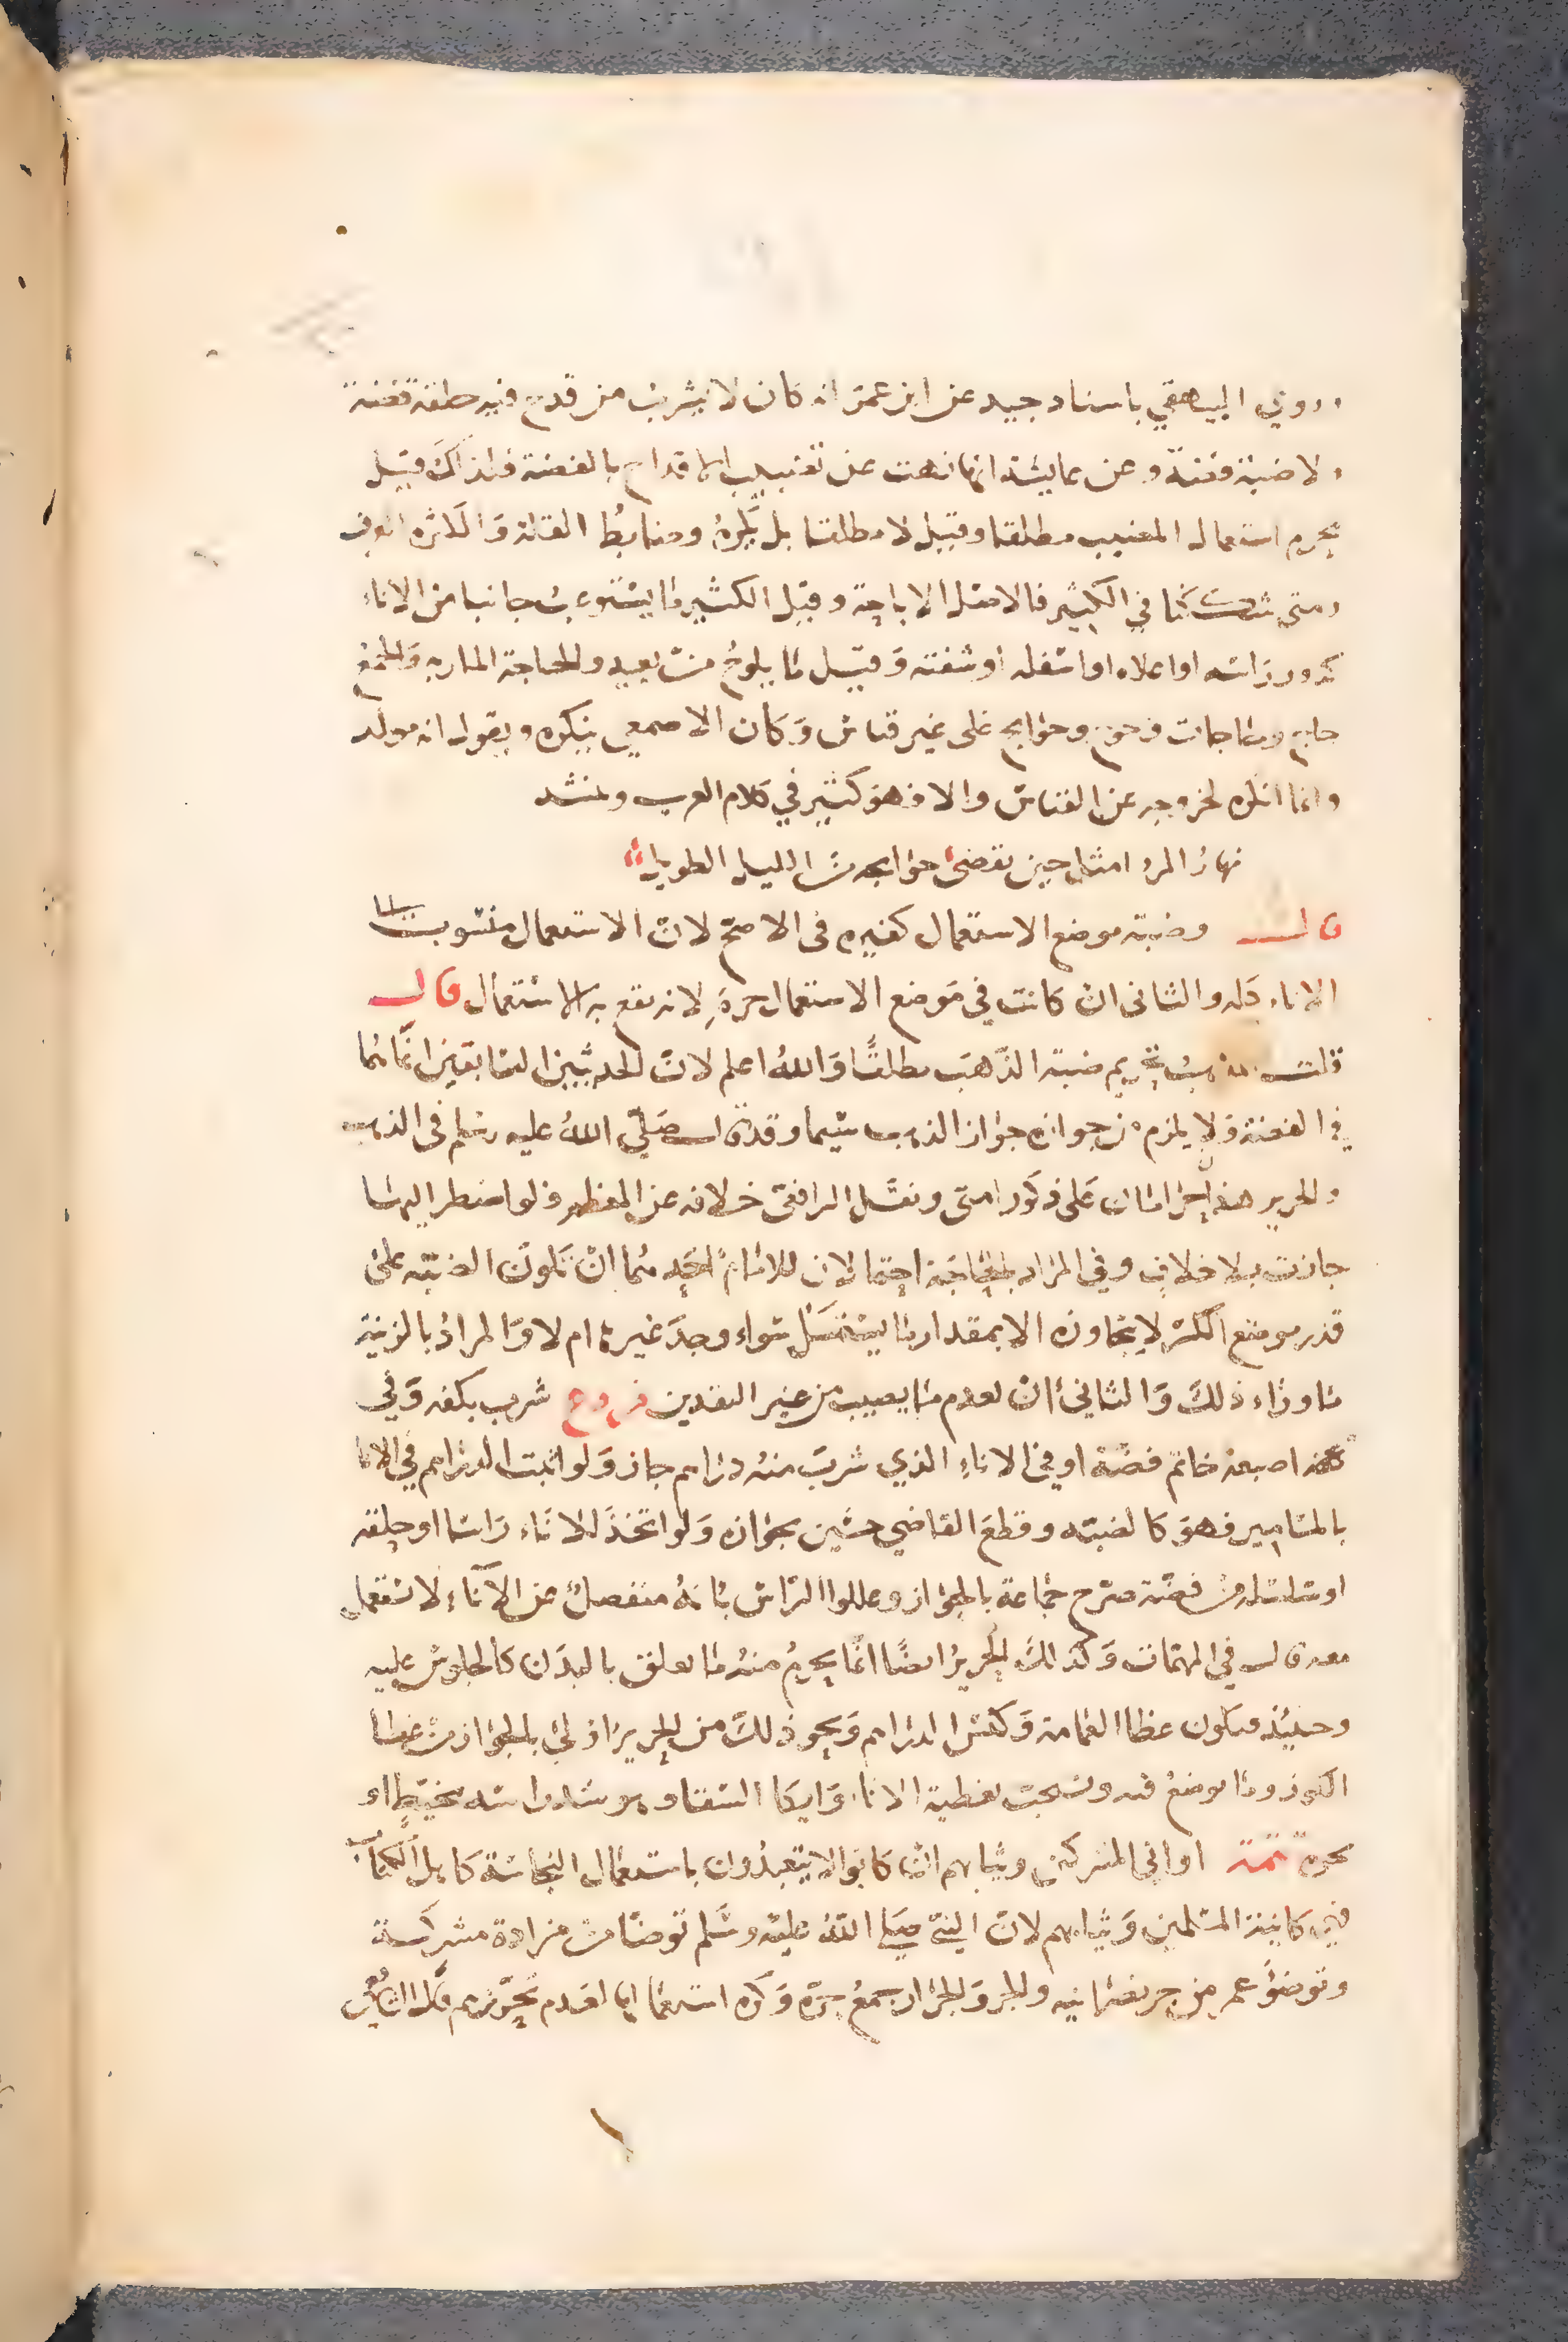 وروي البيهقي باسناد جيد عن ابن عمر انه كان لا يشرب من قدح فيه حلقة فضة
ولا ضبة فضة وعن عايشة انها نهت عن تضبيب الاقداح بالفضة فلذلك قيل
يحرم استعمال المضبب مطلقا وقيل لا مطلقا بل يكره وضابط القلة والكثرة العرف
ومتى شككنا في الكثير فالاصل الاباحة وقيل الكثير ما يستوعب جانبا من الاناء
كدور راسه او اعلاه او اسفله او شفته وقيل ما يلوح من بعيد والحاجة الماربه والجمع
حاج وحاجات وحوج وحوايج على غير قياس وكان الاصمعي ينكره ويقول انه مولد
وانما انكره لخروجه عن القياس والا فهو كثير في كلام العرب وينشد
نهار المرء امثل حين تقضى حوايجه من الليل الطويل
قال وضبة موضع الاستعمال كغيره في الاصح لان الاستعمال منسوب الى
الاناء كله والثاني ان كانت في موضع الاستعمال حرم لانه يقع به الاستعمال قال
قلت المذهب تحريم ضبة الذهب مطلقا والله اعلم لان الحديثين السابقين انما هما
في الفضة ولا يلزم من جوازه جواز الذهب سيما وقد قال صلى الله عليه وسلم في الذهب
والحرير هذان حرامان على ذكور امتي ونقل الرافعي خلافه عن المعظم ولو اضطر اليها
جازت بلا خلاف وفي المراد بالحاجة احتمالان للامام احدهما ان تكون الضبة على
قدر موضع الكسر لا يتجاوزه الا بمقدار ما يستمسك سواء وجد غيره ام لا والمراد بالزينة
ما وراء ذلك والثاني ان يعدم ما يضبب من غير النقدين فروع شرب بكفه وفي
اصبعه خاتم فضة او في الاناء الذي شرب منه دراهم جاز ولو اثبت الدراهم في الانا
بالمسامير فهو كالضبة وقطع القاضي حسين بجوازه ولو اتخذ للاناء راسا او حلقة
او سلسلة من فضة صرح جماعة بالجواز وعللوا الراس بانه منفصل عن الاناء لا يستعمل
معه قال في المهمات وكذلك الحرير ايضا انما يحرم منه ما يعلق بالبدن كالجلوس عليه
وحينئذ فيكون غطا العمامة وكيس الدراهم ونحو ذلك من الحرير اولى بالجواز من غطا
الكوز وما يوضع فيه ويستحب تغطية الاناء وايكا السقا وهو شد راسه بخيط او
نحوه تتمة اواني المشركين وثيابهم ان كانوا لا يتعبدون باستعمال النجاسة كاهل الكتاب
فهي كانية المسلمين وثيابهم لان النبي صلى الله عليه وسلم توضا من مزادة مشركة
وتوضأ عمر من جر نصرانيه والجر والجرار جمع جرة وكره استعمالها لعدم تحرزهم